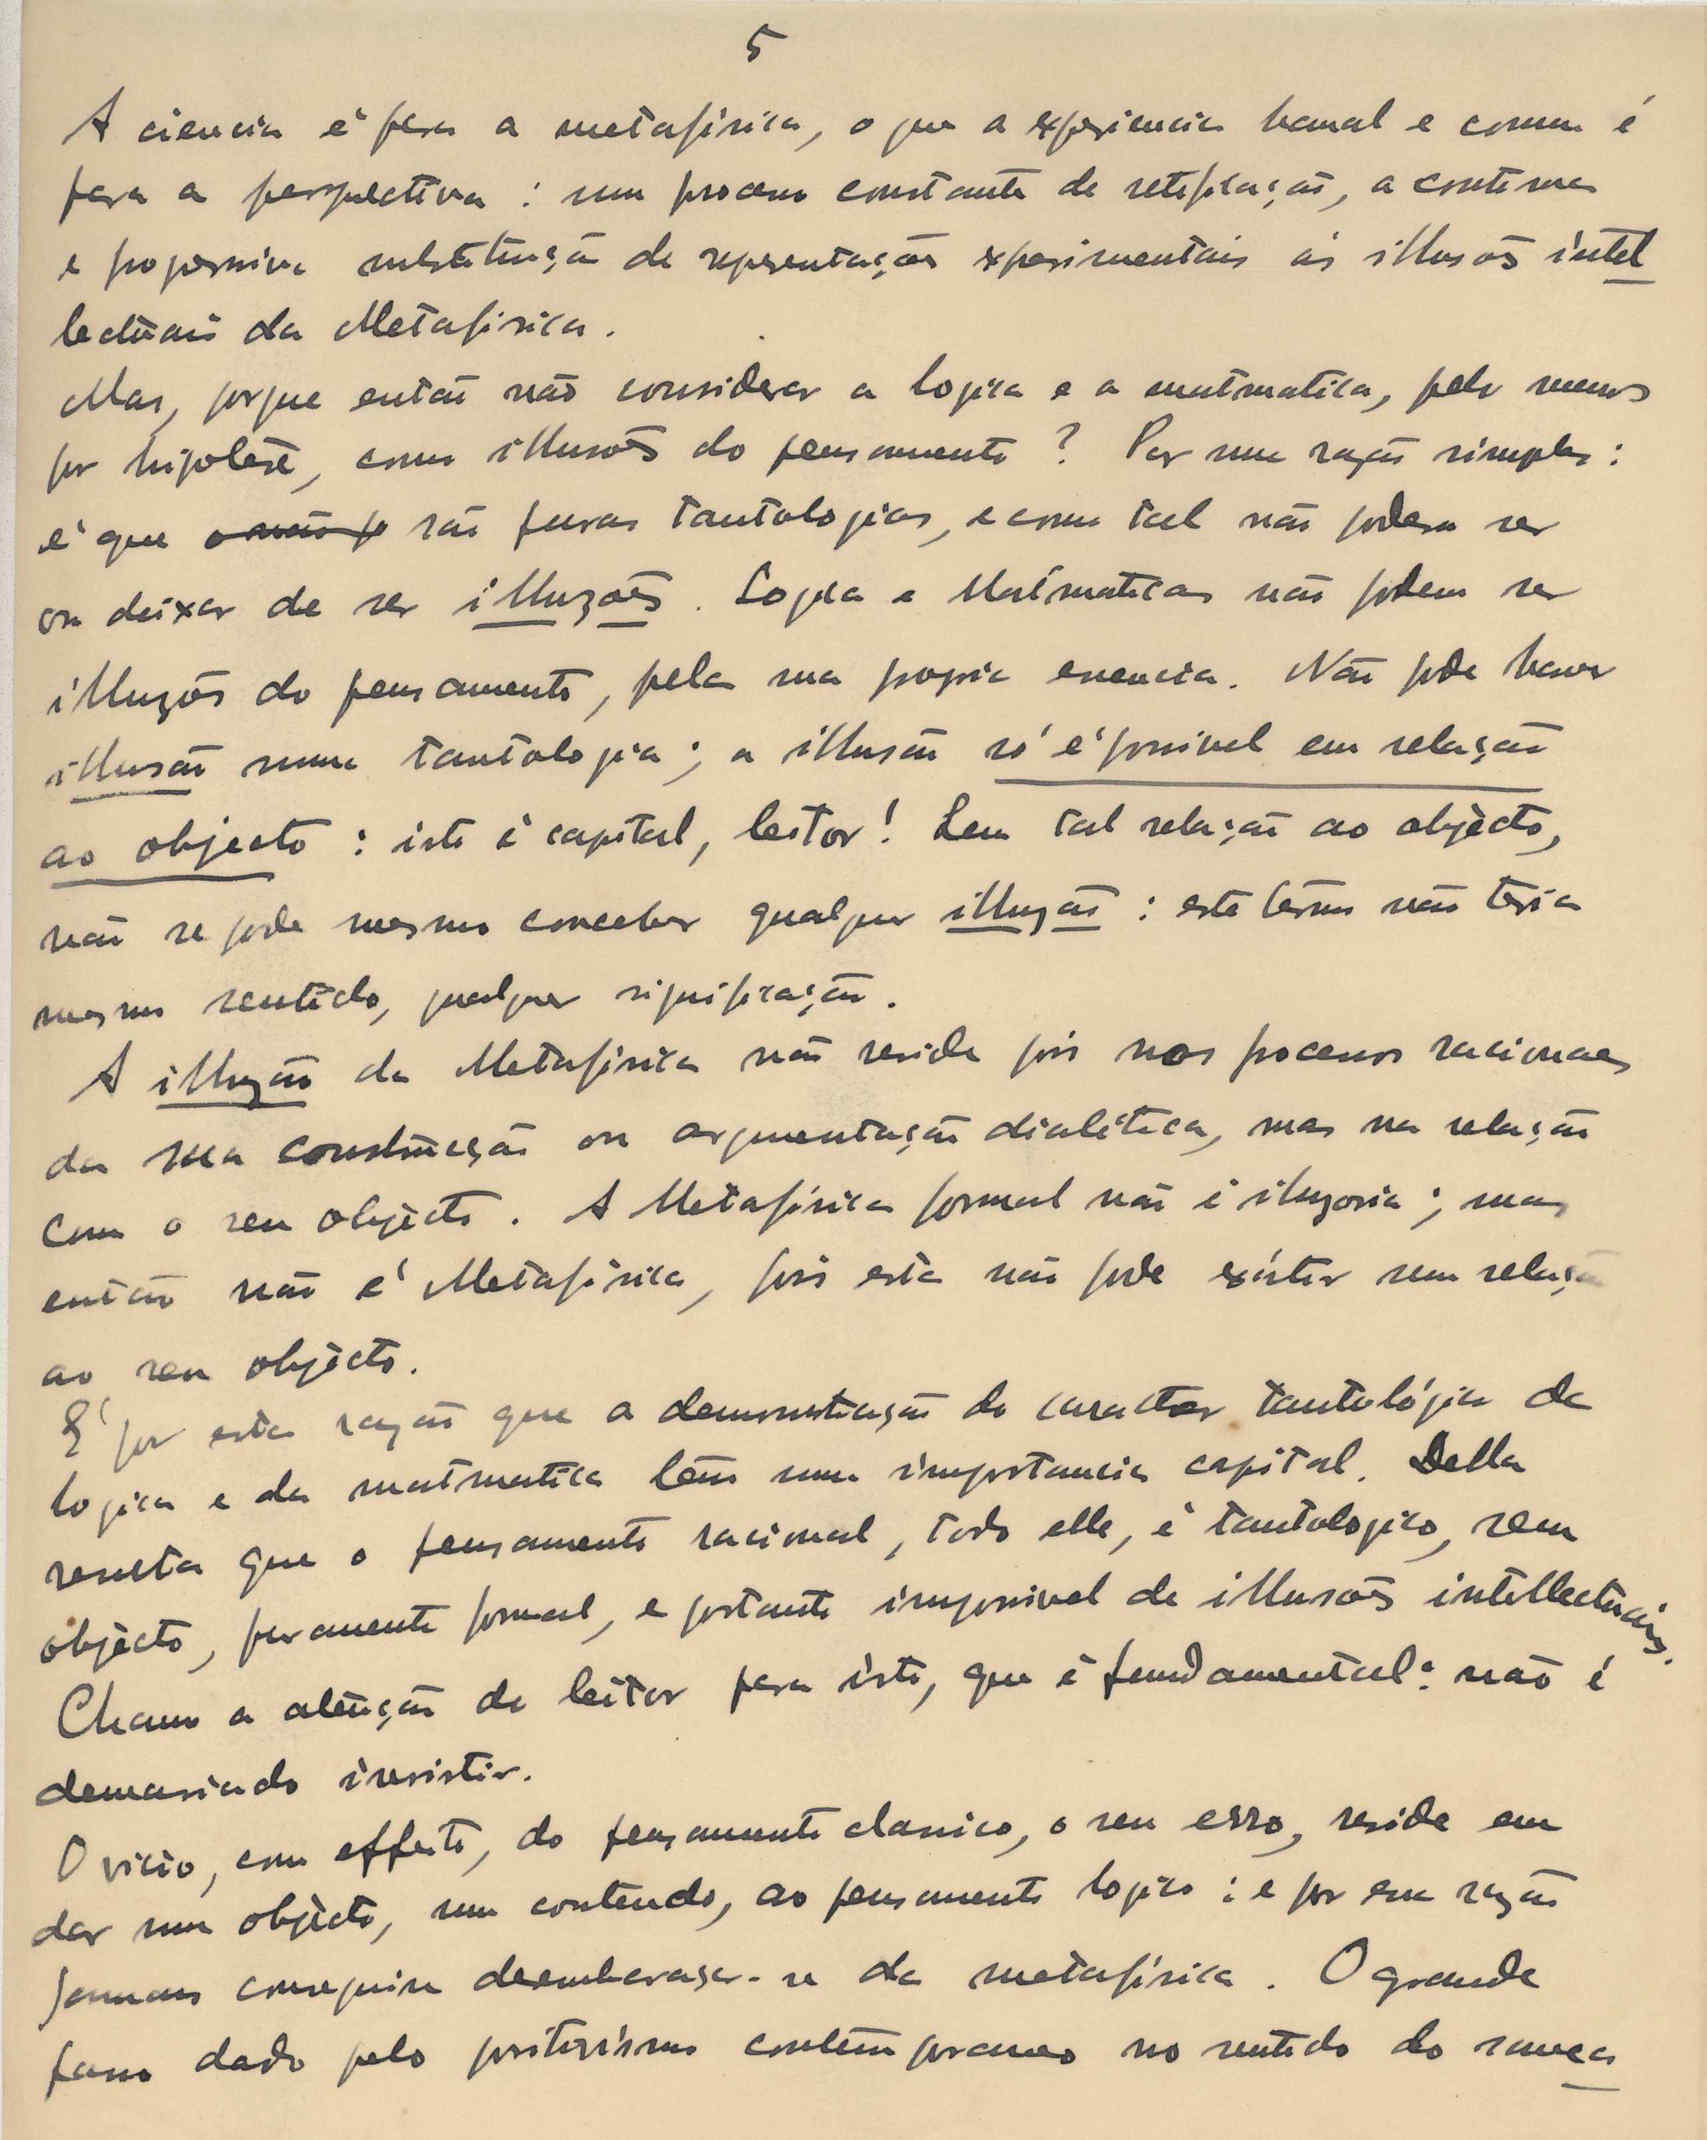 5
A ciencia é para a metafisica, o que a experiencia banal e comum é
para a perspectiva : um processo constante de retificação, a continua
e progressiva substituição de representações experimentais ás illusões intel
lectuais da Metafisica.
Mas, porque então não considerar a logica e a matematica, pelo menos
por hipotese, como illusões do pensamento ? Por uma razão simples :
é que são puras tautologias, e como tal não podem ser
ou deixar de ser illuzões. Logica e Matematicas não podem ser
illuzões do pensamento, pela sua propria essencia. Não pode haver
illusão numa tautologia ; a illusão só é possivel em relação
ao objecto : isto é capital, leitor ! Sem tal relação ao objécto,
não se pode mesmo conceber qualquer illuzão : este termo não teria
mesmo sentido, qualquer significação.
A illuzão da Metafisica não reside pois nos processos racionaes
da sua construcção ou argumentação dialética, mas na relação
com o seu objécto. A Metafísica formal não é iluzoria ; mas
então não é Metafísica, pois esta não pode existir sem relação
ao seu objécto.
E' por esta razão que a demonstração do caracter tautológico da
logica e da matematica têm uma importancia capital. Della
resulta que o pensamento racional, todo elle, é tautologico, sem
objécto, puramente formal, e portanto impossivel de illusões intellectuais.
Chamo a atenção do leitor para isto, que é fundamental : não é
demasiado insistir.
O vicio, com effeito, do pensamento classico, o seu erro, reside em
dar um objécto, um conteudo, ao pensamento logico : e por essa razão
jamais conseguiu desembaraçar-se da metafísica. O grande
passo dado pelo positivismo contemporaneo no sentido do sanea